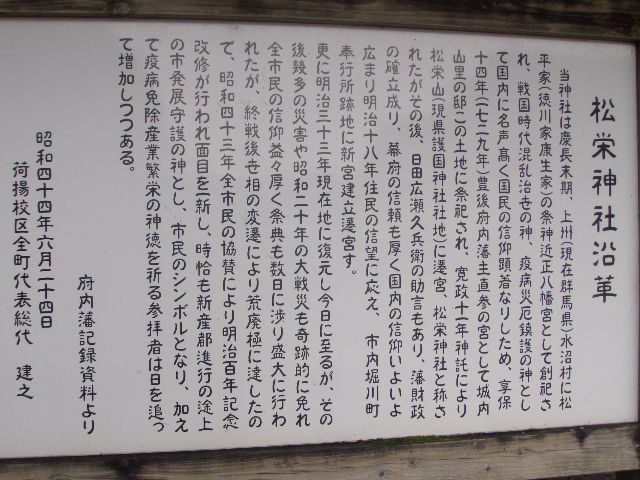 松栄神社沿革
当神社は慶長末期、上州(現在群馬県)水沼村に松
平家(徳川家康生家)の祭神近正八幡宮として創祀さ
れ、戦国時代混乱治世の神、疫病災厄鎮護の神とし
て国内に名声高く国民の信仰顕著なりしため、享保
十四年(七二九年)豊後府内藩主直参の宮として城内
山里の邸この土地に祭祀され、寛政十一年神託により
松栄山(現県護国神社社地)に遷宮、松栄神社と称さ
れたがその後、日田広瀬久兵衛の助言もあり、藩財政
の確立成り、幕府の信頼も厚く国内の信仰いよいよ
広まり明治十八年住民の信望に応え、市内堀川町
奉行所跡地に新宮建立遷宮す。
更に明治三十三年現在地に復元し今日に至るが、その
後幾多の災害や昭和二十年の大戦災も奇跡的に免れ
全市民の信仰益々厚く祭典も数日に渉り盛大に行わ
れたが、終戦後世相の変遷により荒廃極に達したの
で、昭和四十三年全市民の協賛により明治百年記念
改修が行われ面目を一新し、時恰も新産都進行の途上
の市発展守護の神とし、市民のシンボルとなり、加え
て疫病免除産業繁栄の神徳を祈る参拝者は日を追っ
て増加しつつある。
府内藩記録資料より
昭和四十四年六月二十四日
荷揚校区全町代表総代 建之